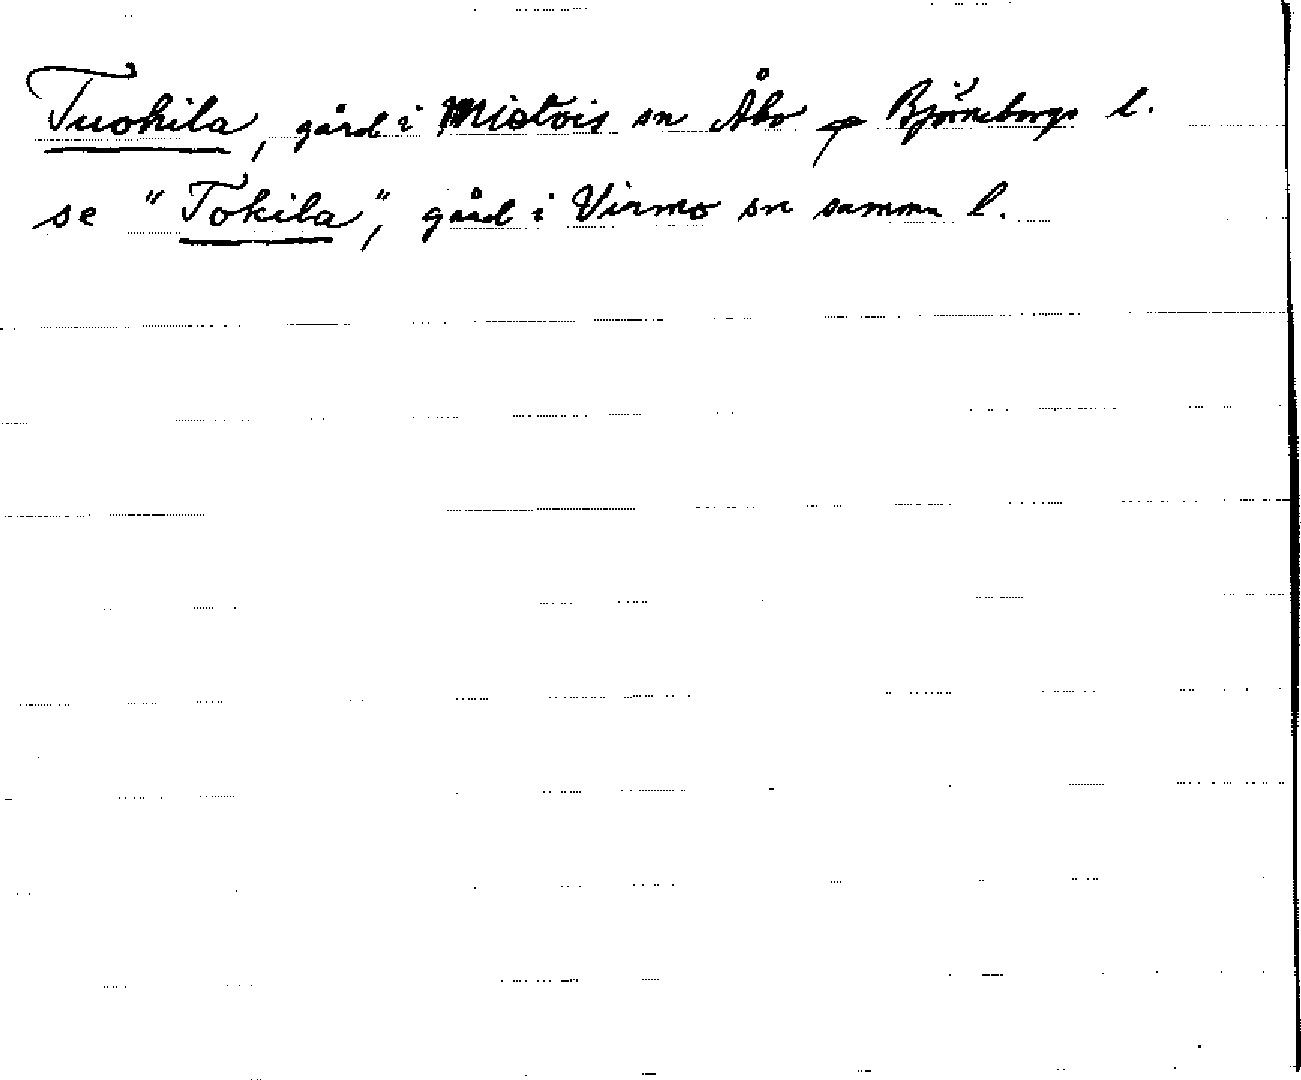 Tuokila, gård i Mietois sn Åbo o Björneborgs l.
se "Tokila", gård i Virmo sn samma l.